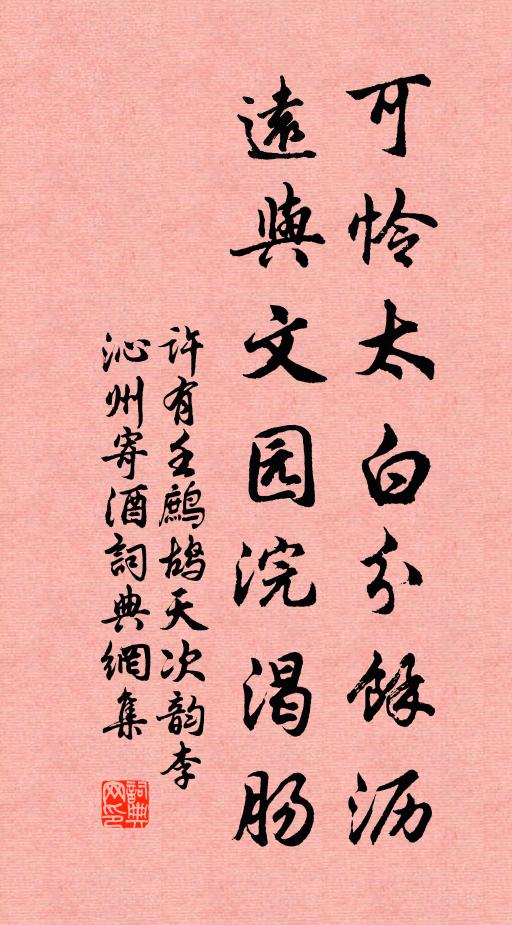 可怜太白分馀沥
遠與文园浣渴肠
许有壬鹧鸪天次韵李
沁州寄酒詞典網集
詞典网印